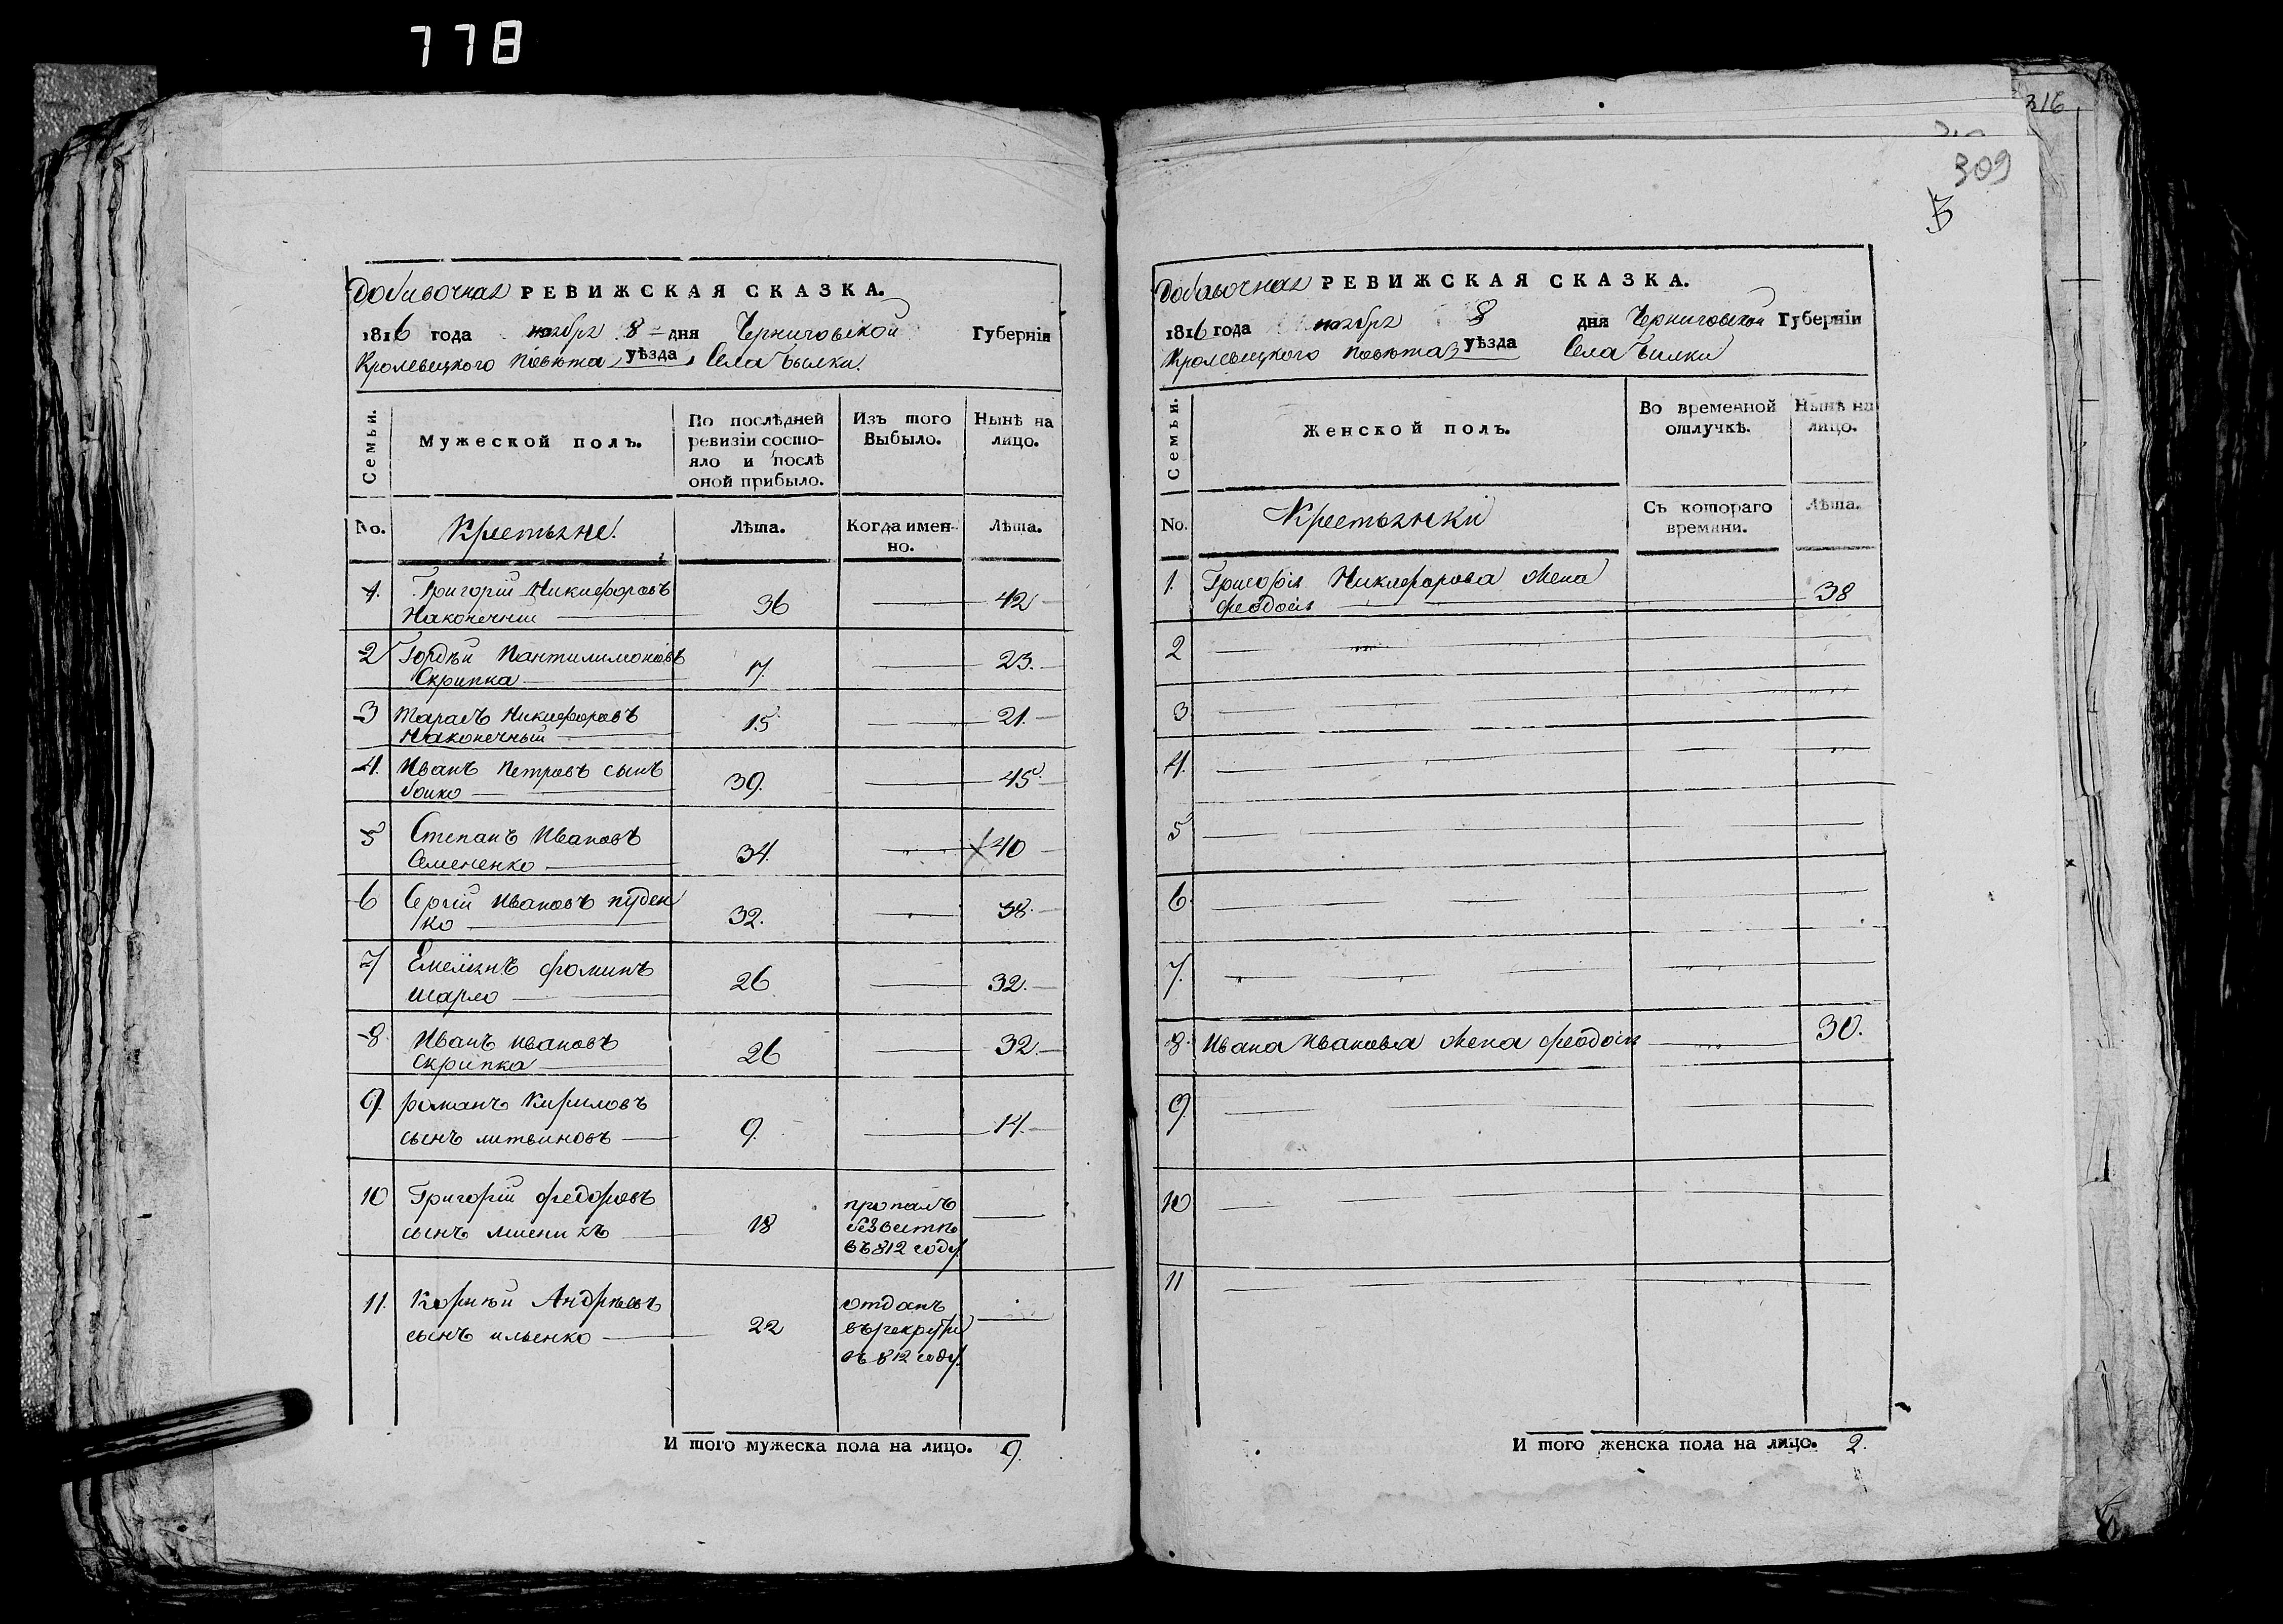 778
316
309
Добавочная РЕВИЖСКАЯ СКАЗКА.
1816 года ноября 8 дня Черниговской Губерніи
Кролевецкого повѣта уѣзда Села Билки.
Семьи.
Мужеской полъ.
По послѣдней
ревизіи состо-
яло и послѣ
оной прибыло.
Изъ того
Выбыло.
Нынѣ на
лицо.
No.
Крестьяне.
Лѣта.
Когда имен-
но.
Лѣта.
1. Григорій Никифоровъ
Наконечный 36 42
2 Гордѣй Пантилимоновъ
Скрипка 17. 23.
3 Тарасъ Никифоровъ
Наконечный 15 21.
4. Иванъ Петровъ сынъ
боико 39. 45.
5 Степанъ Ивановъ
Семененко 34. 40
6 Сергій Ивановъ пуден
ко 32. 38.
7 Емелянъ фоминъ
шарло 26 32.
8 Иванъ ивановъ
скрипка 26 32.
9. романъ Кириловъ
сынъ литвиновъ 9. 14.
10 Григорій федоровъ
сынъ 18 пропалъ
безвитно
въ 812 году.
11. Корнѣй Андрѣевъ
сынъ ильенко 22 отданъ
въ рекруты
въ 812 году.
И того мужеска пола на лицо. 9.
Добавочная РЕВИЖСКАЯ СКАЗКА.
1816 года ноября 8 дня Черниговской Губерніи
Кролевецкого повѣта уѣзда Села Билки
Семьи.
Женской полъ.
Во временной
отлучкѣ.
Нынѣ на
лицо.
No.
Крестьянки
Съ котораго
времини.
Лѣта.
1. Григорія Никифорова жена
феодосія 38
2
3
4.
5
6.
7.
8. Ивана Иванова жена феодосія 30.
9.
10
11
И того женска пола на лицо. 2.